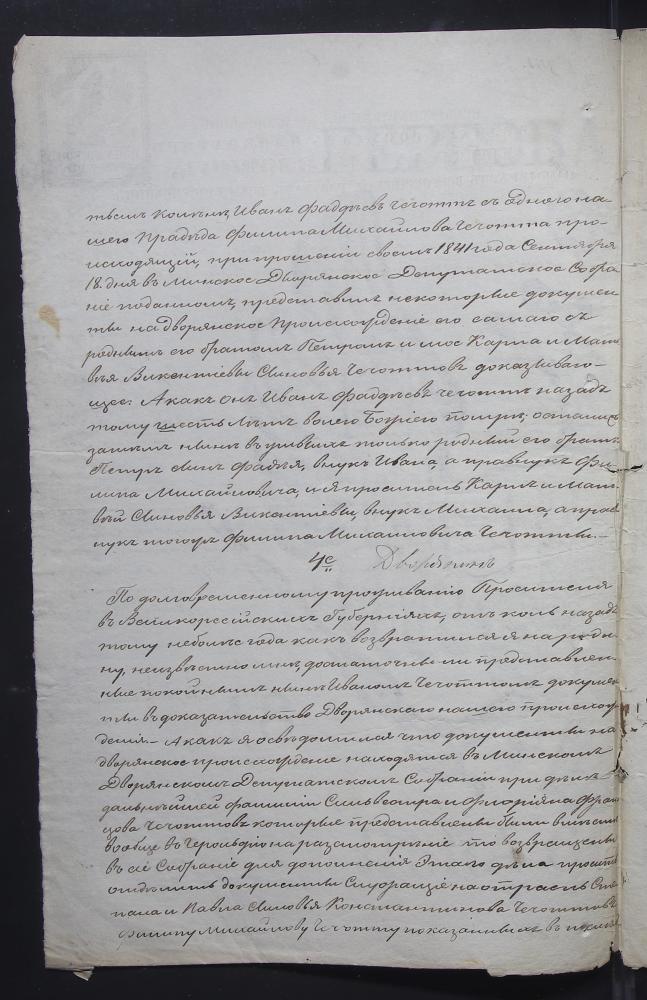 тьемъ коленѣ, Иванъ Фаддѣевъ Чечоттъ съ одного на-
шего прадѣда Филипа Михайлова Чечотта про-
исходящій, при прошеніи своемъ 1841 года Сентября
18 дня въ Минское Дворянское Депутатское Собра-
ніе поданномъ, представилъ некоторые докумен-
ты на дворянское происхожденіе его самаго съ
роднымъ его братомъ Петромъ и мое Карла и Мат-
вѣя Викентіевы Сыновья Чечоттовъ доказываю-
щее: А какъ онъ Иванъ Фаддѣевъ Чечоттъ назадъ
тому шесть лѣтъ волею Божіею помре; остались
затымъ нынѣ въ живыхъ только родный его братъ
Петръ сынъ Фадѣя, внукъ Ивана, а правнукъ Фи-
липа Михайловича, и я проситель Карлъ и Мат-
вѣй Сыновья Викентіевы, внукъ Михаила, а прав-
нукъ тогожъ Филипа Михайловича Чечотты.—
4е Дворянинъ
По долговременному проживанію Просителя
въ Великороссійскихъ Губерніяхъ, отъ коль назадъ
тому неболѣе года какъ возвратился я на роди-
ну, неизвѣстно мнѣ, достаточны ли представлен-
ные покойнымъ нынѣ Иваномъ Чечоттомъ докумен
ты въ доказательство Дворянскаго нашего происхож
денія.— А какъ я освѣдомился что документы на
дворянское происхожденіе находятся въ Минскомъ
Дворянскомъ Депутатскомъ Собраніи при дѣлѣ
дальнѣйшей фамиліи Сильвестра и Флоріяна Фран
цова Чечоттовъ которые представлены были
вообще въ Герольдію на разсмотреніе то возвращены
въ сіе Собраніе для дополненія Этаго дѣла
документы Служащіе на отрасль Сте
пана и Павла Сыновья Константинова Чечоттовъ
Филипу Михайлову Чечотту показанныхъ въ